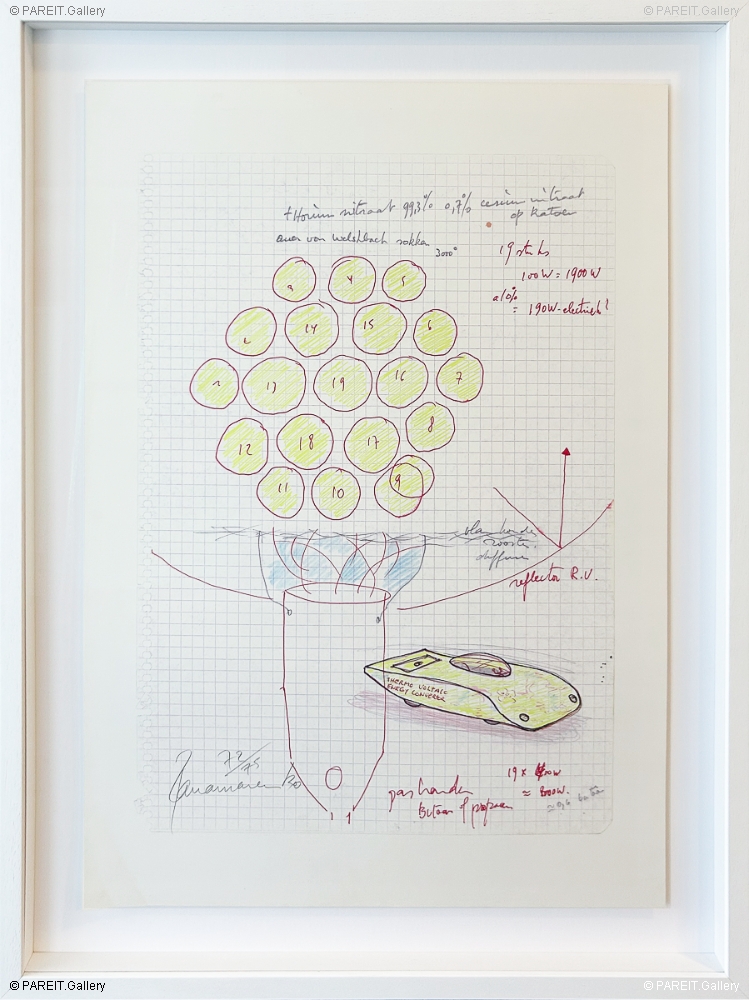 © PAREIT.Gallery
© PAREIT.Gallery
thorium nitraat 99,3% 0,7% cesium nitraat
op katoen
auer von welshbach sokken
3000°
19 stuks
100W = 1900W
a 10%
= 190W-electrisch!
3 4 5
2 14 15 6
1 13 19 16 7
12 18 17 8
11 10 9
rooster
diffusie
reflector R.V.
THERMO VOLTAIC
ENERGY CONVERTER
72/75
Panamarenko
gasbrander
Butaan of propaan
19 x 400W
≈ 8000W.
© PAREIT.Gallery
© PAREIT.Gallery